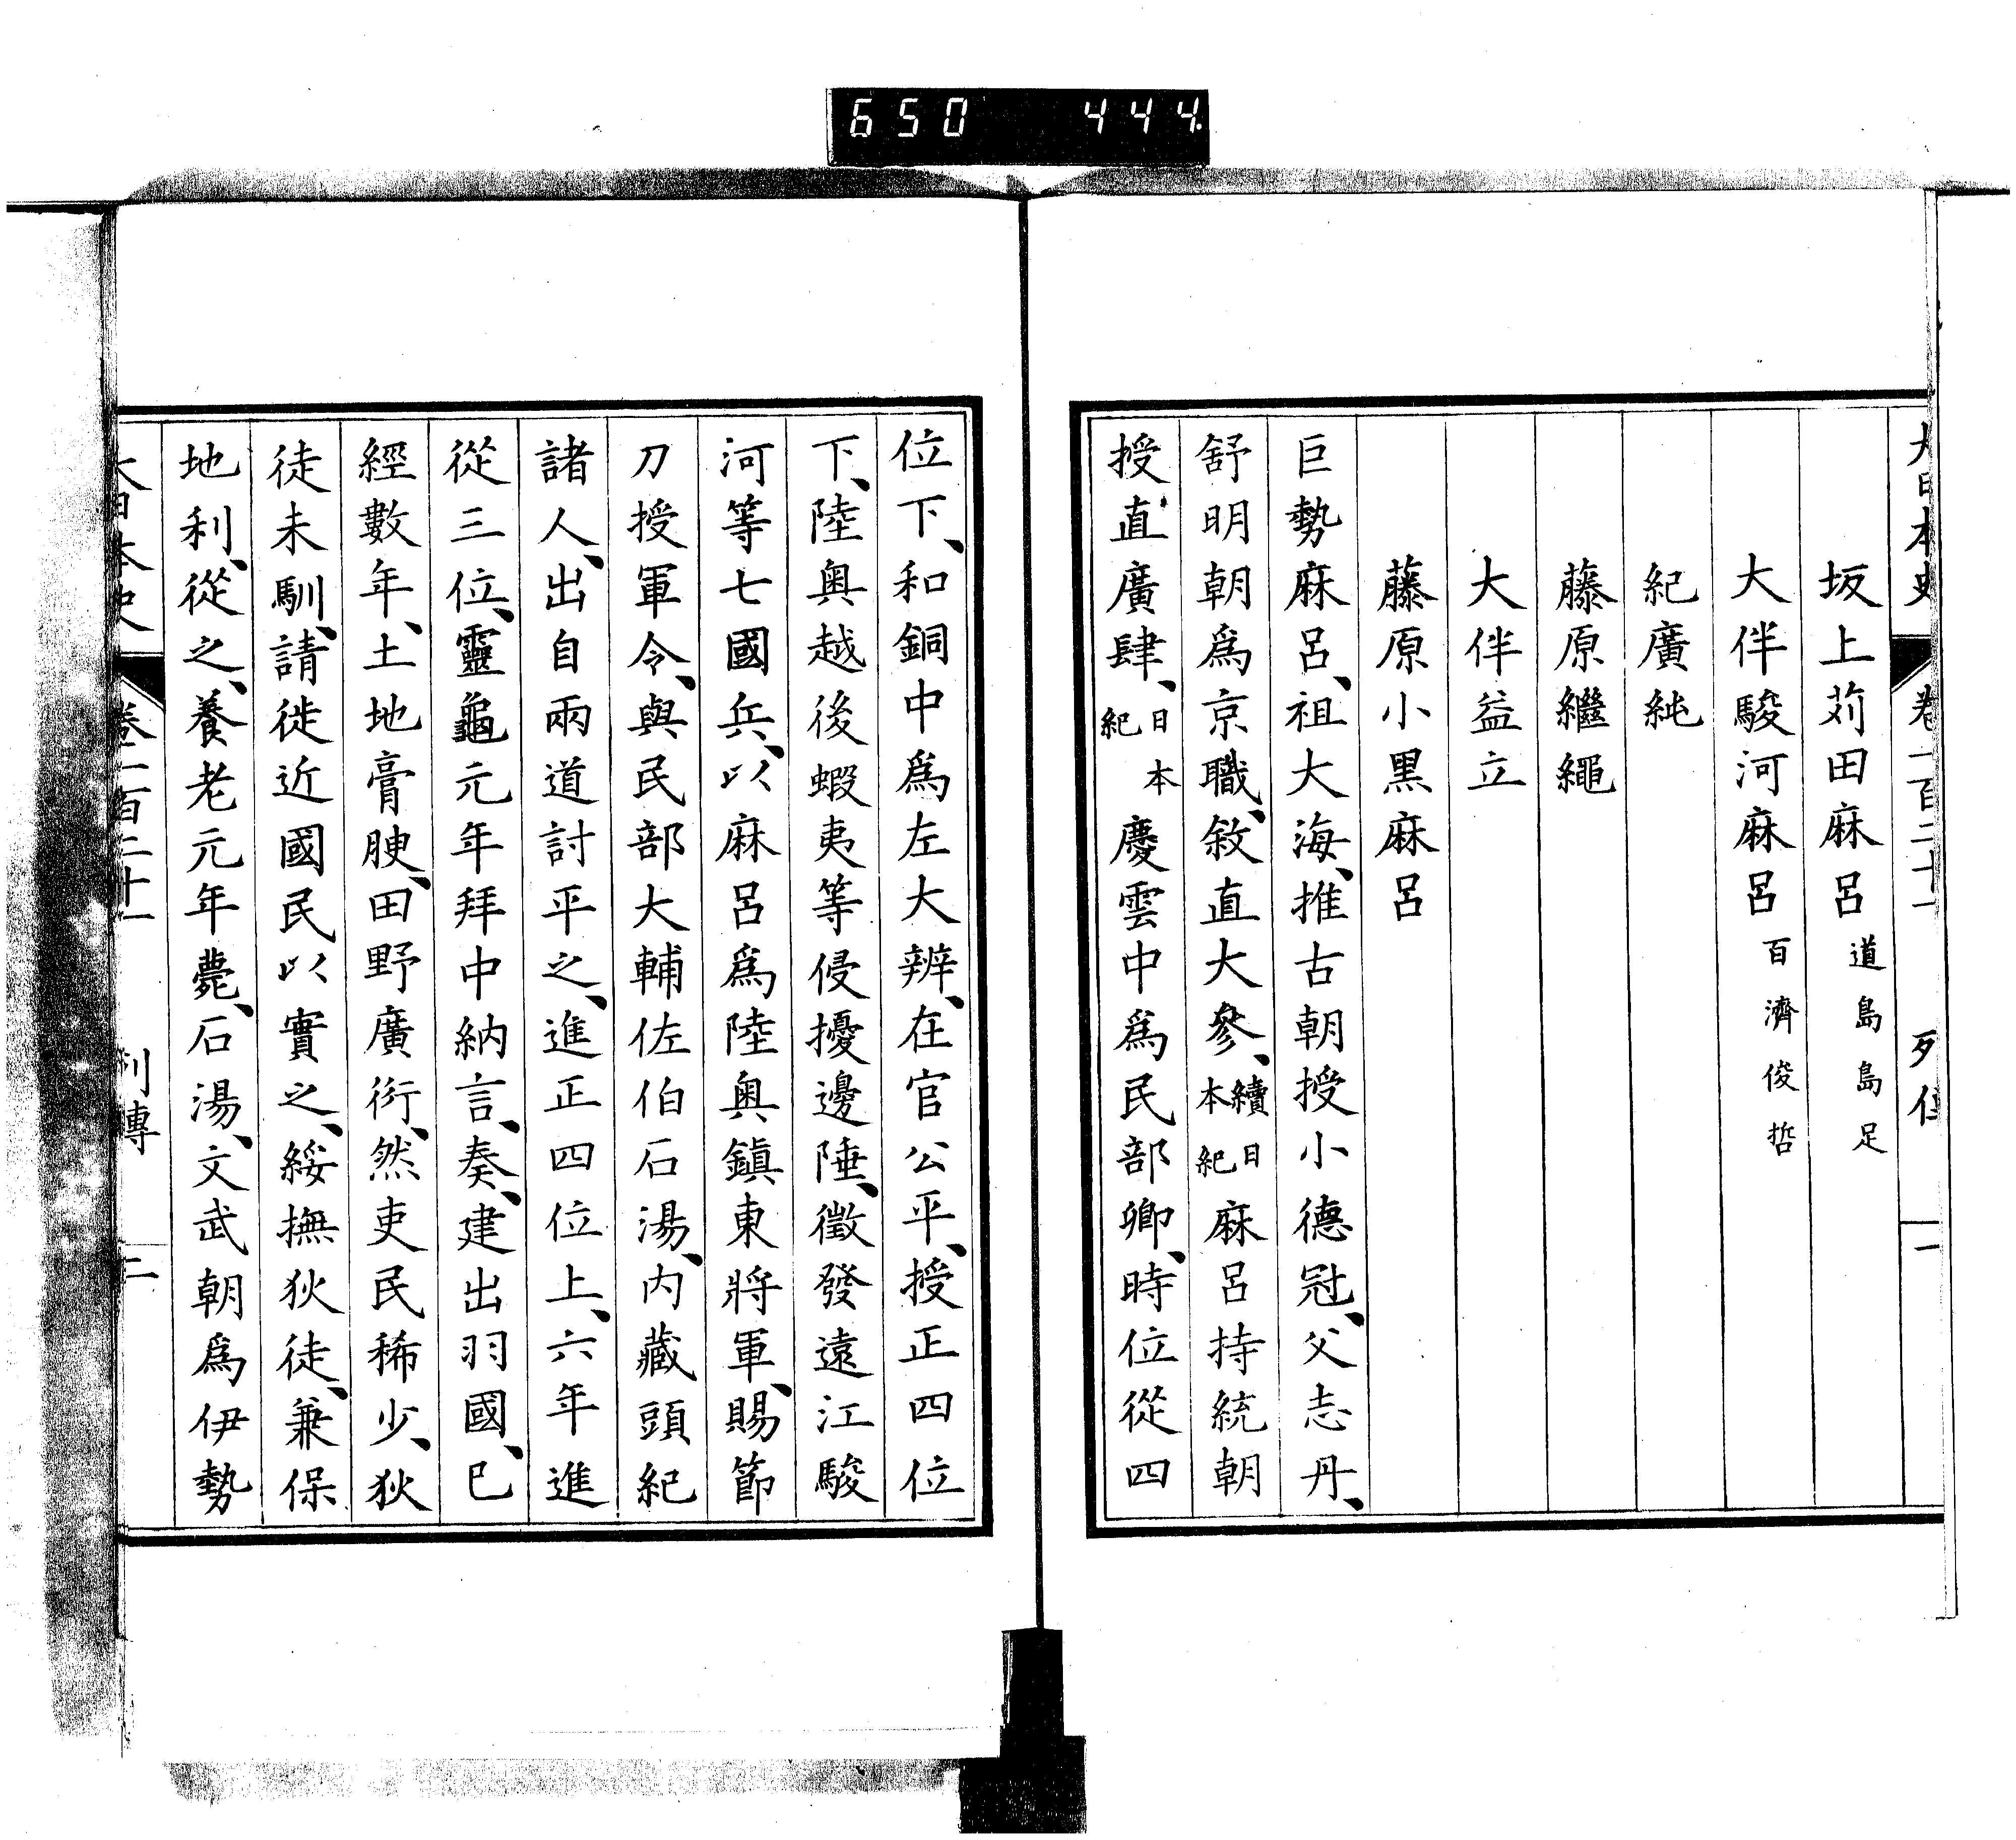 650 444
大日本史 卷一百二十一 列傳 一
坂上苅田麻呂 道島島足
大伴駿河麻呂 百濟俊哲
紀廣純
藤原繼繩
大伴益立
藤原小黑麻呂
巨勢麻呂、祖大海、推古朝授小德冠、父志丹、
舒明朝爲京職、敘直大參、續日本紀麻呂持統朝
授直廣肆、日本紀慶雲中爲民部卿、時位從四
位下、和銅中爲左大辨、在官公平、授正四位
下、陸奥越後蝦夷等侵擾邊陲、徵發遠江駿
河等七國兵、以麻呂爲陸奥鎭東將軍、賜節
刀授軍令、與民部大輔佐伯石湯、内藏頭紀
諸人、出自兩道討平之、進正四位上、六年進
從三位、靈龜元年拜中納言、奏、建出羽國、已
經數年、土地膏腴、田野廣衍、然吏民稀少、狄
徒未馴、請徙近國民以實之、綏撫狄徒、兼保
地利、從之、養老元年薨、石湯、文武朝爲伊勢
大日本史 卷一百二十一 列傳 二